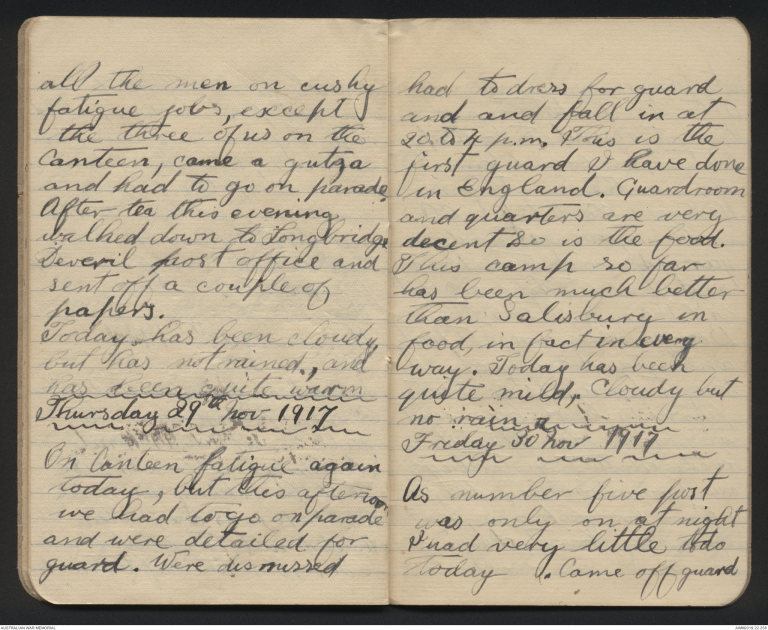 all the men on cushy
fatigue jobs, except
the three of us on the
Canteen, came a gutza
and had to go on parade
After tea this evening
walked down to Longbridge
Deveril post office and
sent off a couple of
papers.
Today has been cloudy,
but has not rained, and
has been quite warm
Thursday 29th nov 1917
On Canteen fatigue again
today, but this afternoon
we had to go on parade
and were detailed for
guard. Were dismissed
had to dress for guard
and and fall in at
20 to 4 p.m. This is the
first guard I have done
in England. Guardroom
and quarters are very
decent so is the food.
This camp so far
has been much better
than Salisbury in
food, in fact in every
way. Today has been
quite mild, cloudy but
no rain
Friday 30 Nov 1917
As number five post
was only on at night
I had very little to do
today. Came off guard
AUSTRALIAN WAR MEMORIAL